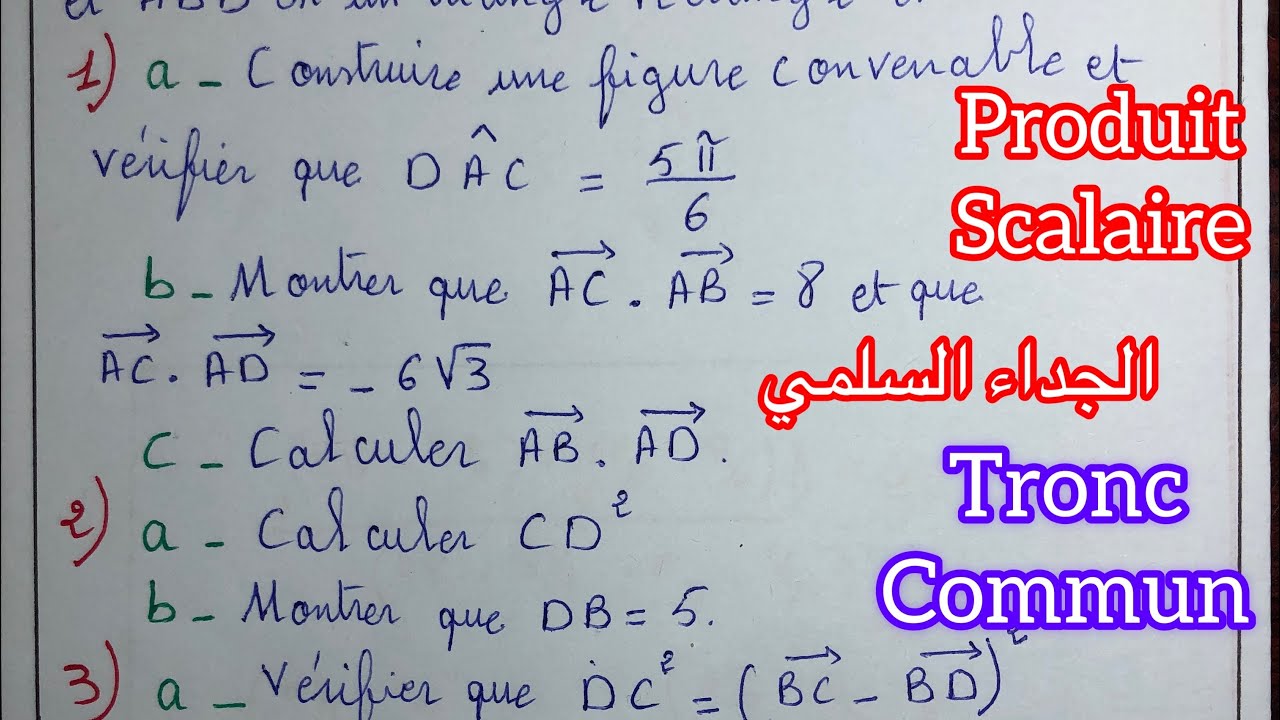 1) a - Construire une figure convenable et
vérifier que DÂC = 5π/6
b - Montrer que AC⃗ . AB⃗ = 8 et que
AC⃗ . AD⃗ = - 6√3
c - Calculer AB⃗ . AD⃗ .
2) a - Calculer CD²
b - Montrer que DB = 5.
3) a - Vérifier que DC² = (BC⃗ - BD⃗)²
Produit
Scalaire
الجداء السلمي
Tronc
Commun